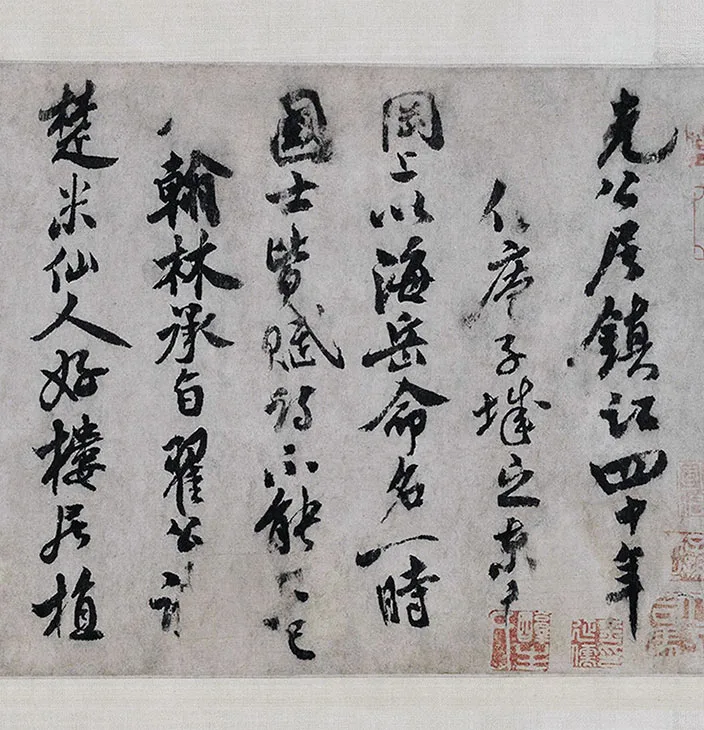 先公居鎮江四十年
作庵于城之東
岡上以海岳命名一時
國士皆賦詩不能 記
翰林承旨翟公詩
楚米仙人好樓居植